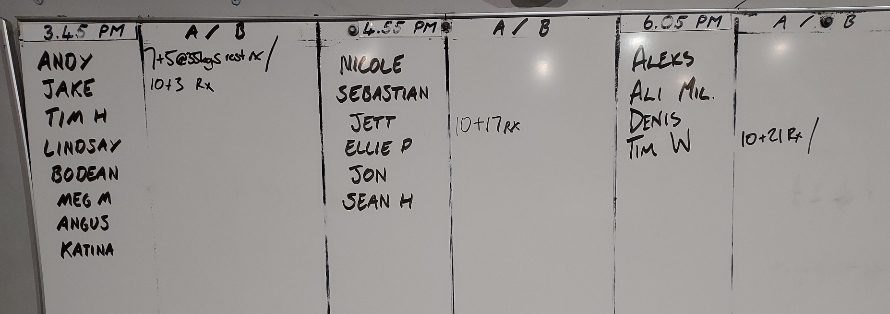 3.45 PM A / B 4.55 PM A / B 6.05 PM A / B
ANDY 7+5@35kgs rest rx /
JAKE 10+3 Rx
TIM H
LINDSAY
BODEAN
MEG M
ANGUS
KATINA
NICOLE
SEBASTIAN
JETT 10+17 RX
ELLIE P
JON
SEAN H
ALEKS
ALI MIL.
DENIS
TIM W 10+21 Rx /